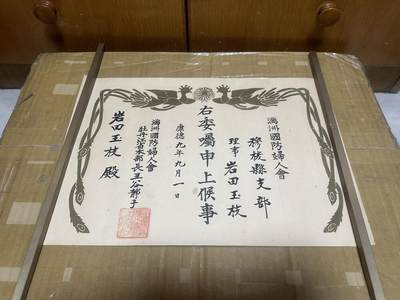 滿洲國防婦人會
穆稜縣支部
理事 岩田玉枝
右委囑申上候事
康德九年九月一日
滿洲國防婦人會
牡丹江省本部長 谷靜子
岩田玉枝 殿